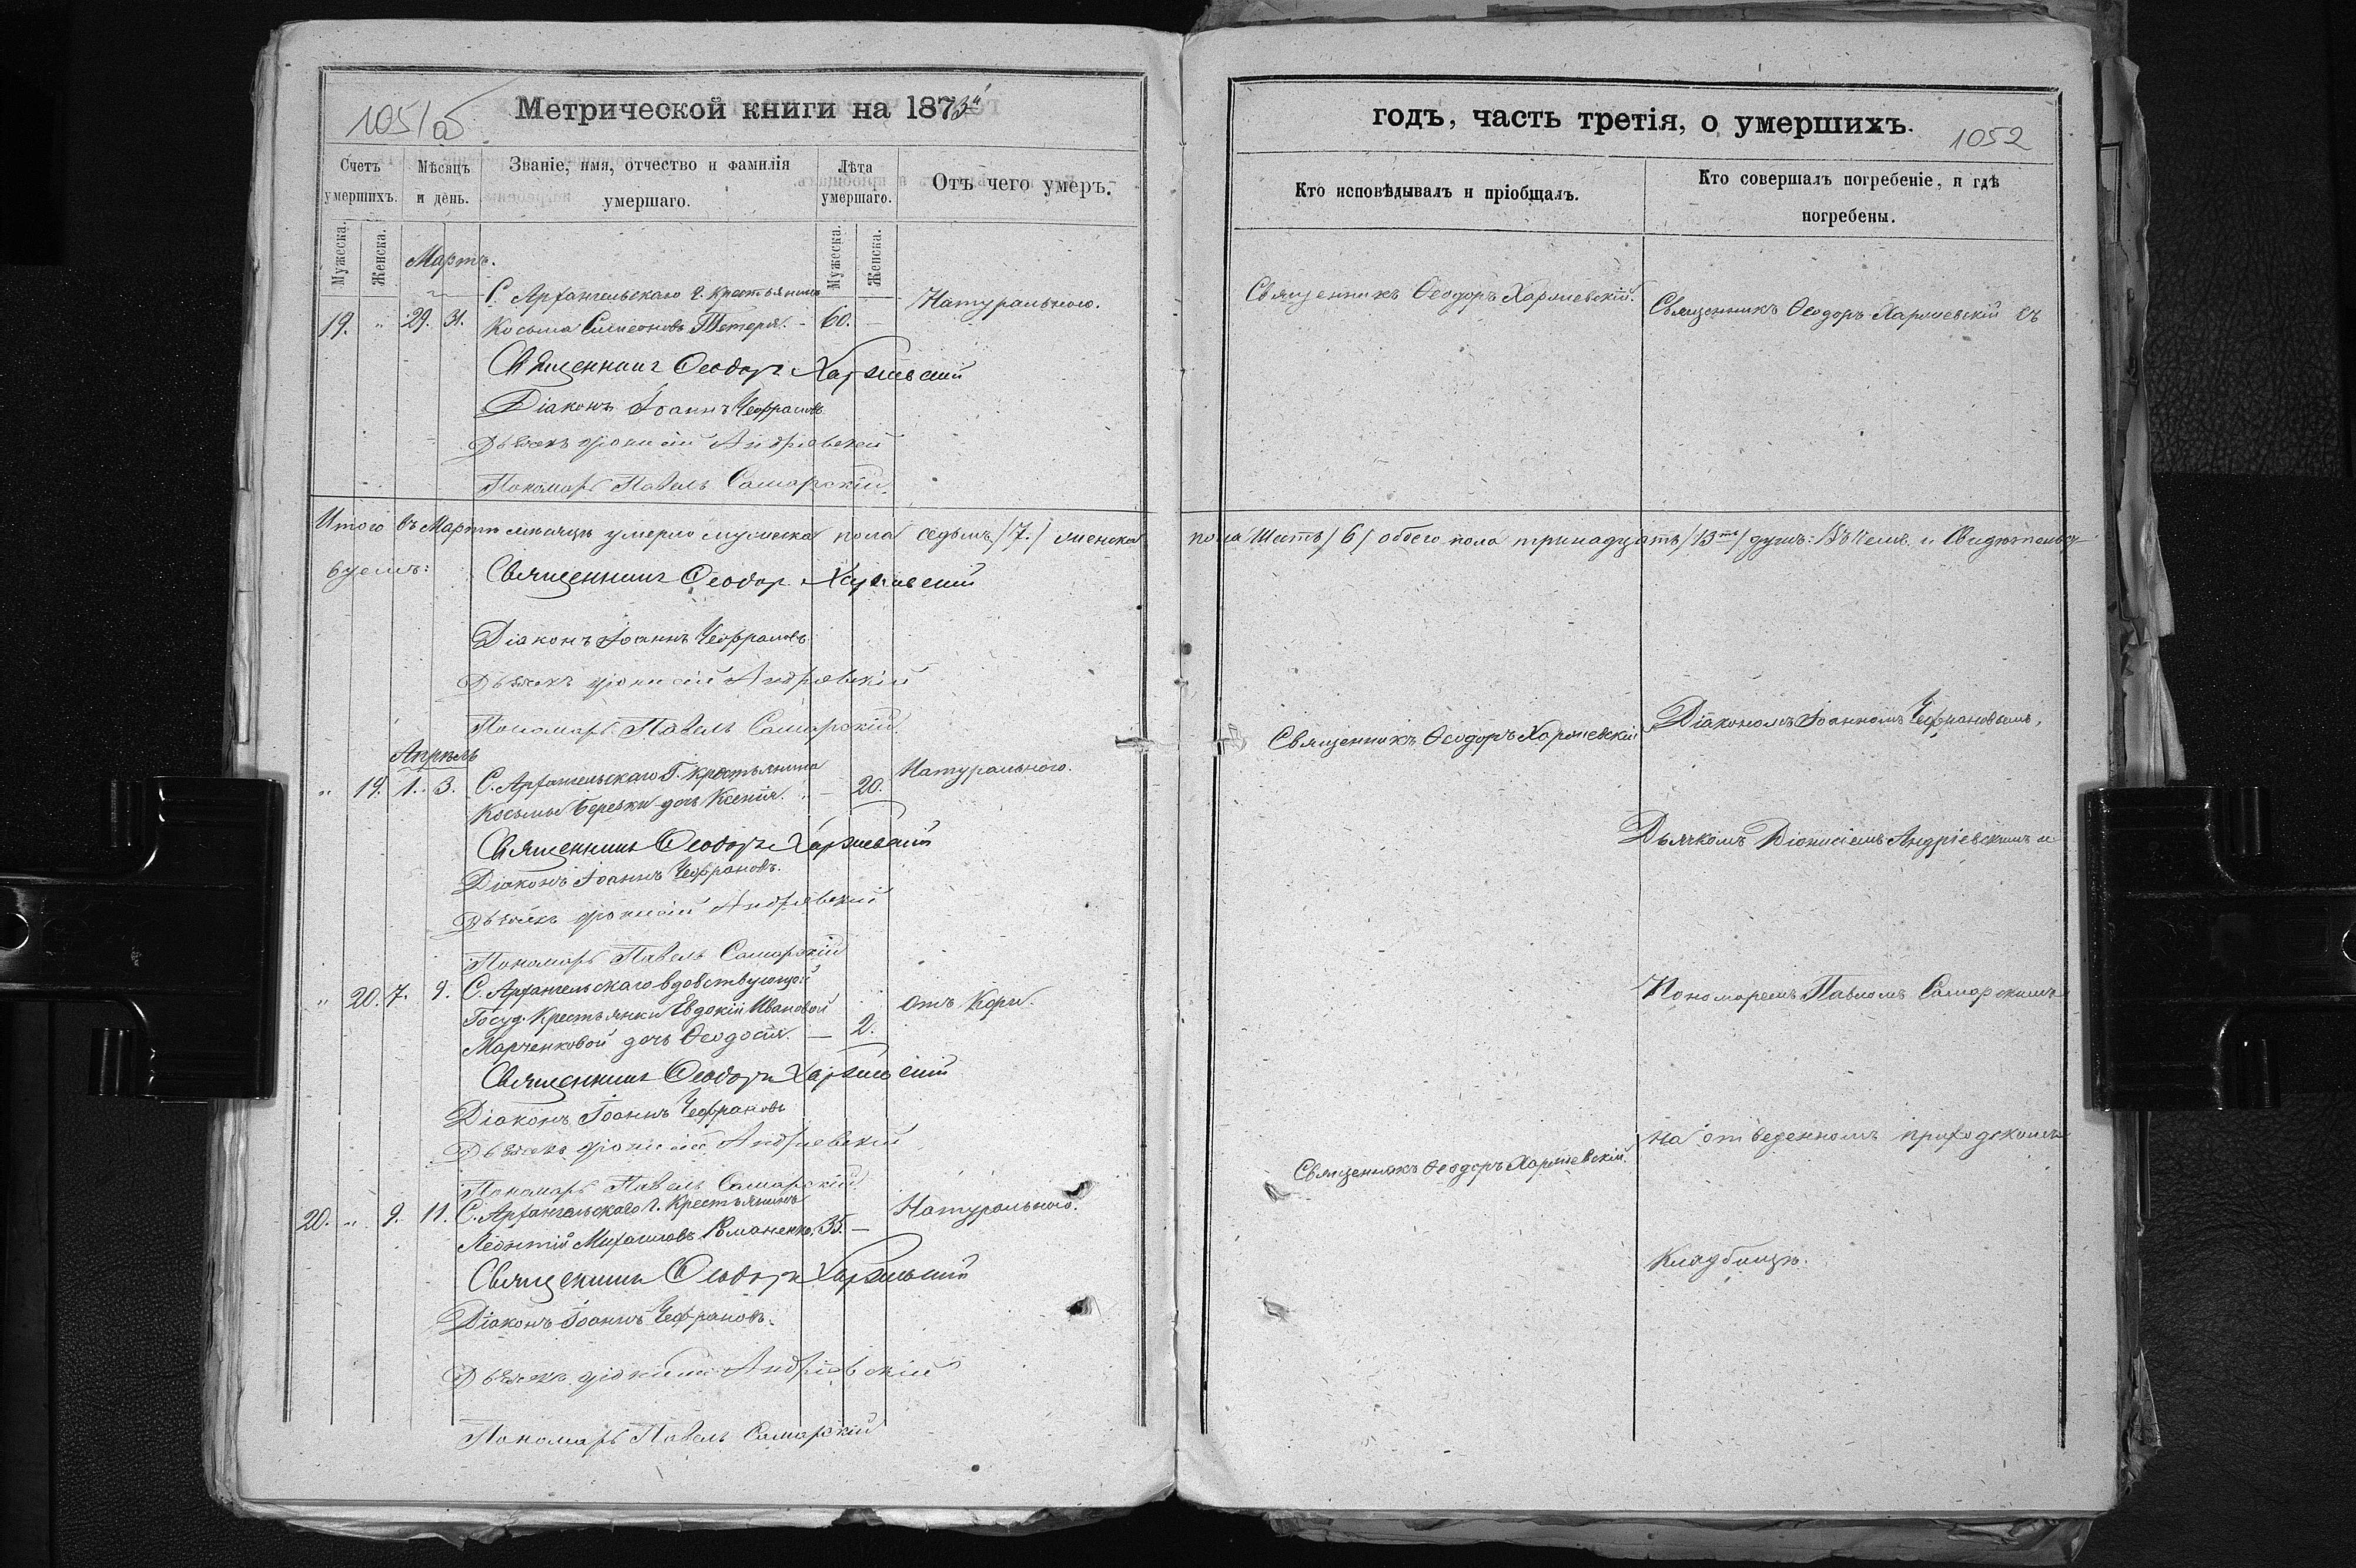 1051об
Метрической книги на 1873й
Счетъ умершихъ.
Мѣсяцъ и день.
Званіе, имя, отчество и фамилія умершаго.
Лѣта умершаго.
Отъ чего умеръ.
Мужеска.
Женска.
Мужеска.
Женска.
Мартъ.
С. Архангельскаго Г. Крестьянинъ
19. " 29. 31. Косьма Симеоновъ Тетеря. - 60. — Натуральнаго.
Священникъ Ѳеодоръ Харжевскій
Діаконъ Іоаннъ Чефрановъ
Дьячекъ Діонисій Андріевскій
Пономарь Павелъ Самарскій.
Итого въ Мартѣ мѣсяцѣ умерло мужеска пола седьмъ /7./ женска
буемъ:
Священникъ Ѳеодоръ Харжевскій
Діаконъ Іоаннъ Чефрановъ
Дьячекъ Діонисій Андріевскій
Пономарь Павелъ Самарскій.
Апрѣль
" 19. 1. 3. С. Архангельскаго Г. крестьянина Натуральнаго.
Косьмы Березки дочь Ксенія. — 20.
Священникъ Ѳеодоръ Харжевскій
Діаконъ Іоаннъ Чефрановъ.
Дьячекъ Діонисій Андріевскій
Пономарь Павелъ Самарскій
" 20. 7. 9. С. Архангельскаго вдовствующей
Госуд. Крестьянки Евдокіи Ивановой отъ Кори.
Марченковой дочь Ѳеодосія. — 2.
Священникъ Ѳеодоръ Харжевскій
Діаконъ Іоаннъ Чефрановъ
Дьячекъ Діонисій Андріевскій
Пономарь Павелъ Самарскій.
20. " 9. 11. С. Архангельскаго Г. Крестьянинъ Натуральнаго.
Леонтій Михаиловъ Романенко, 35. —
Священникъ Ѳеодоръ Харжевскій
Діаконъ Іоаннъ Чефрановъ.
Дьячекъ Діонисій Андріевскій
Пономарь Павелъ Самарскій
годъ, часть третія, о умершихъ.
1052
Кто исповѣдывалъ и пріобщалъ.
Кто совершалъ погребеніе, и гдѣ погребены.
Священникъ Ѳеодоръ Харжевскій.
Священникъ Ѳеодоръ Харжевскій съ
пола Шесть /6/ обоего пола тринадцать /13ть/ душъ: Въ чемъ и Свидѣтельст
Священникъ Ѳеодоръ Харжевскій
Діакономъ Іоанномъ Чефрановымъ,
Дьячкомъ Діонисіемъ Андріевскимъ и
Пономаремъ Павломъ Самарскимъ
на отведенномъ приходскомъ
Священникъ Ѳеодоръ Харжевскій.
Кладбищѣ.